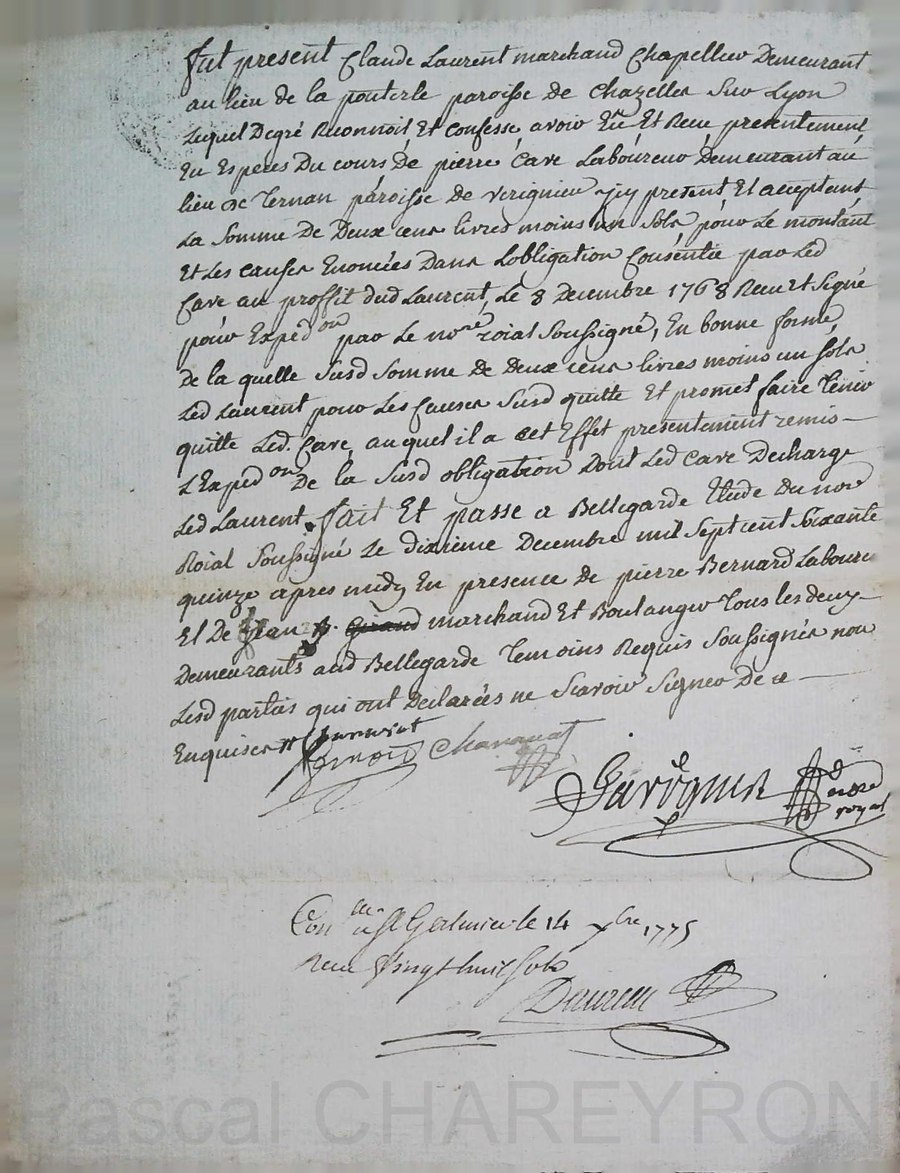 fut present Claude Laurent marchand Chapellier Demeurant
au lieu de la pouterle paroisse de Chazelles Sur Lyon
Lequel Degré Reconnoit Et Confesse avoir Eu Et Receu presentement
En Especes Du cours de pierre Cave Laboureur Demeurant au
lieu de Ternan paroisse de verignieu ycy present Et acceptant
La Somme De Deux cens livres moins un Sols pour Le montant
Et Les causes Enoncées Dans Lobligation Consentie par Led
Cave au proffit dud Laurent, Le 8 Decembre 1768 Receu et Signé
pour Exped.on par Le no.re roial Soussigné, En bonne forme,
De la quelle Susd Somme De deux cens livres moins un sols
Led Laurent pour Les Causes Susd quitte Et promet faire Tenir
quitte Led. Cave, auquel il a cet Effet presentement remis —
L'Exped.on De la Susd obligation Dont Led Cave Decharge
Led Laurent. fait Et passé a Bellegarde Etude Du nore
Roial Soussigné Le dixième Decembre mil Sept cent Soixante
quinze apres midy En presence de pierre Bernard Laboureu
Et De Jean marchand Et Boulanger Tous les deux
Demeurants aud Bellegarde Temoins Requis Soussignés non
Lesd parties qui ont Declarées ne Scavoir Signer De ce —
Enquises
Chanavat
notre
royal
Con.lé a St Galmier le 14 xbre 1775
Receu Vingt huit sols